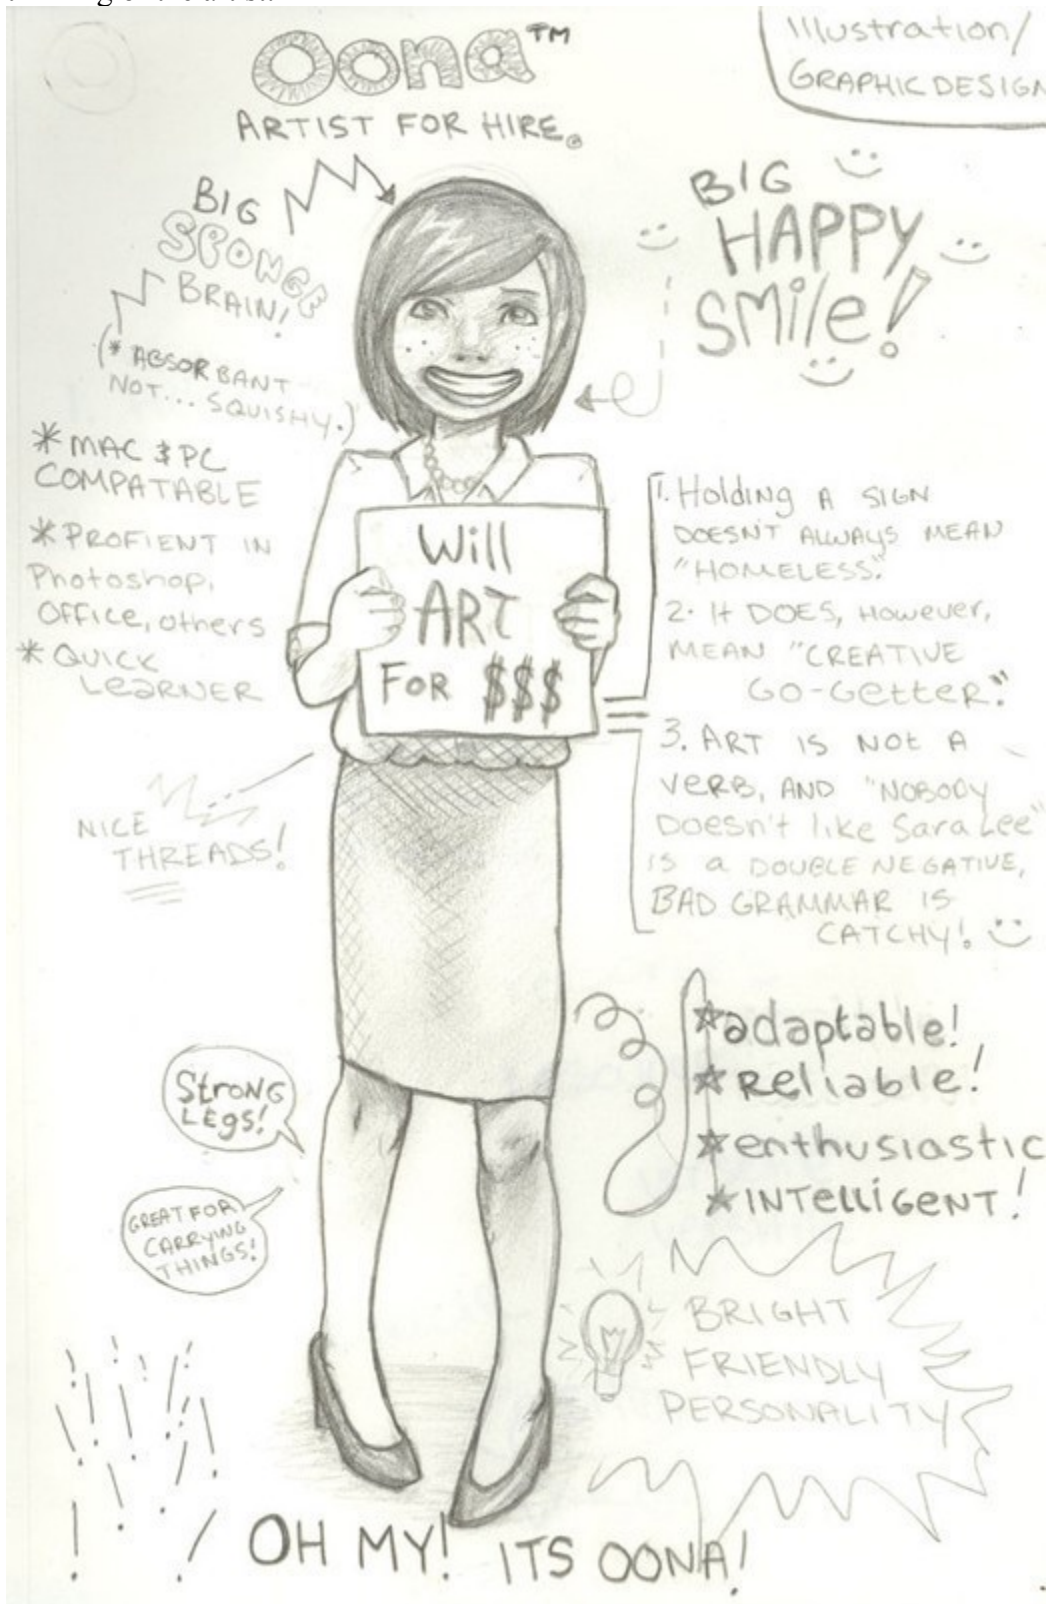 Oona™
ARTIST FOR HIRE.
Illustration/
GRAPHIC DESIGN
BIG
SPONGE
BRAIN!
(* ABSORBANT
NOT... SQUISHY.)
BIG
HAPPY
SMile!
* MAC & PC
COMPATABLE
* PROFIENT IN
Photoshop,
OFFICE, others
* QUICK
LeaRNER
Will
ART
FOR $$$
1. Holding A SIGN
DOESNT ALWAYS MEAN
"HOMELESS."
2. It DOES, However,
MEAN "CREATIVE
GO-Getter."
3. ART IS NOt A
VERB, AND "NOBODY
Doesn't like Sara Lee"
IS a DOUBLE NEGATIVE,
BAD GRAMMAR IS
CATCHY!
NICE
THREADS!
*adaptable!
*Reliable!
*enthusiastic
*INTelliGENT!
StroNG
LEgs!
GREAT FOR
CARRYING
THINGS!
BRIGHT
FRIENDLY
PERSONALITY
OH MY! ITS OONA!